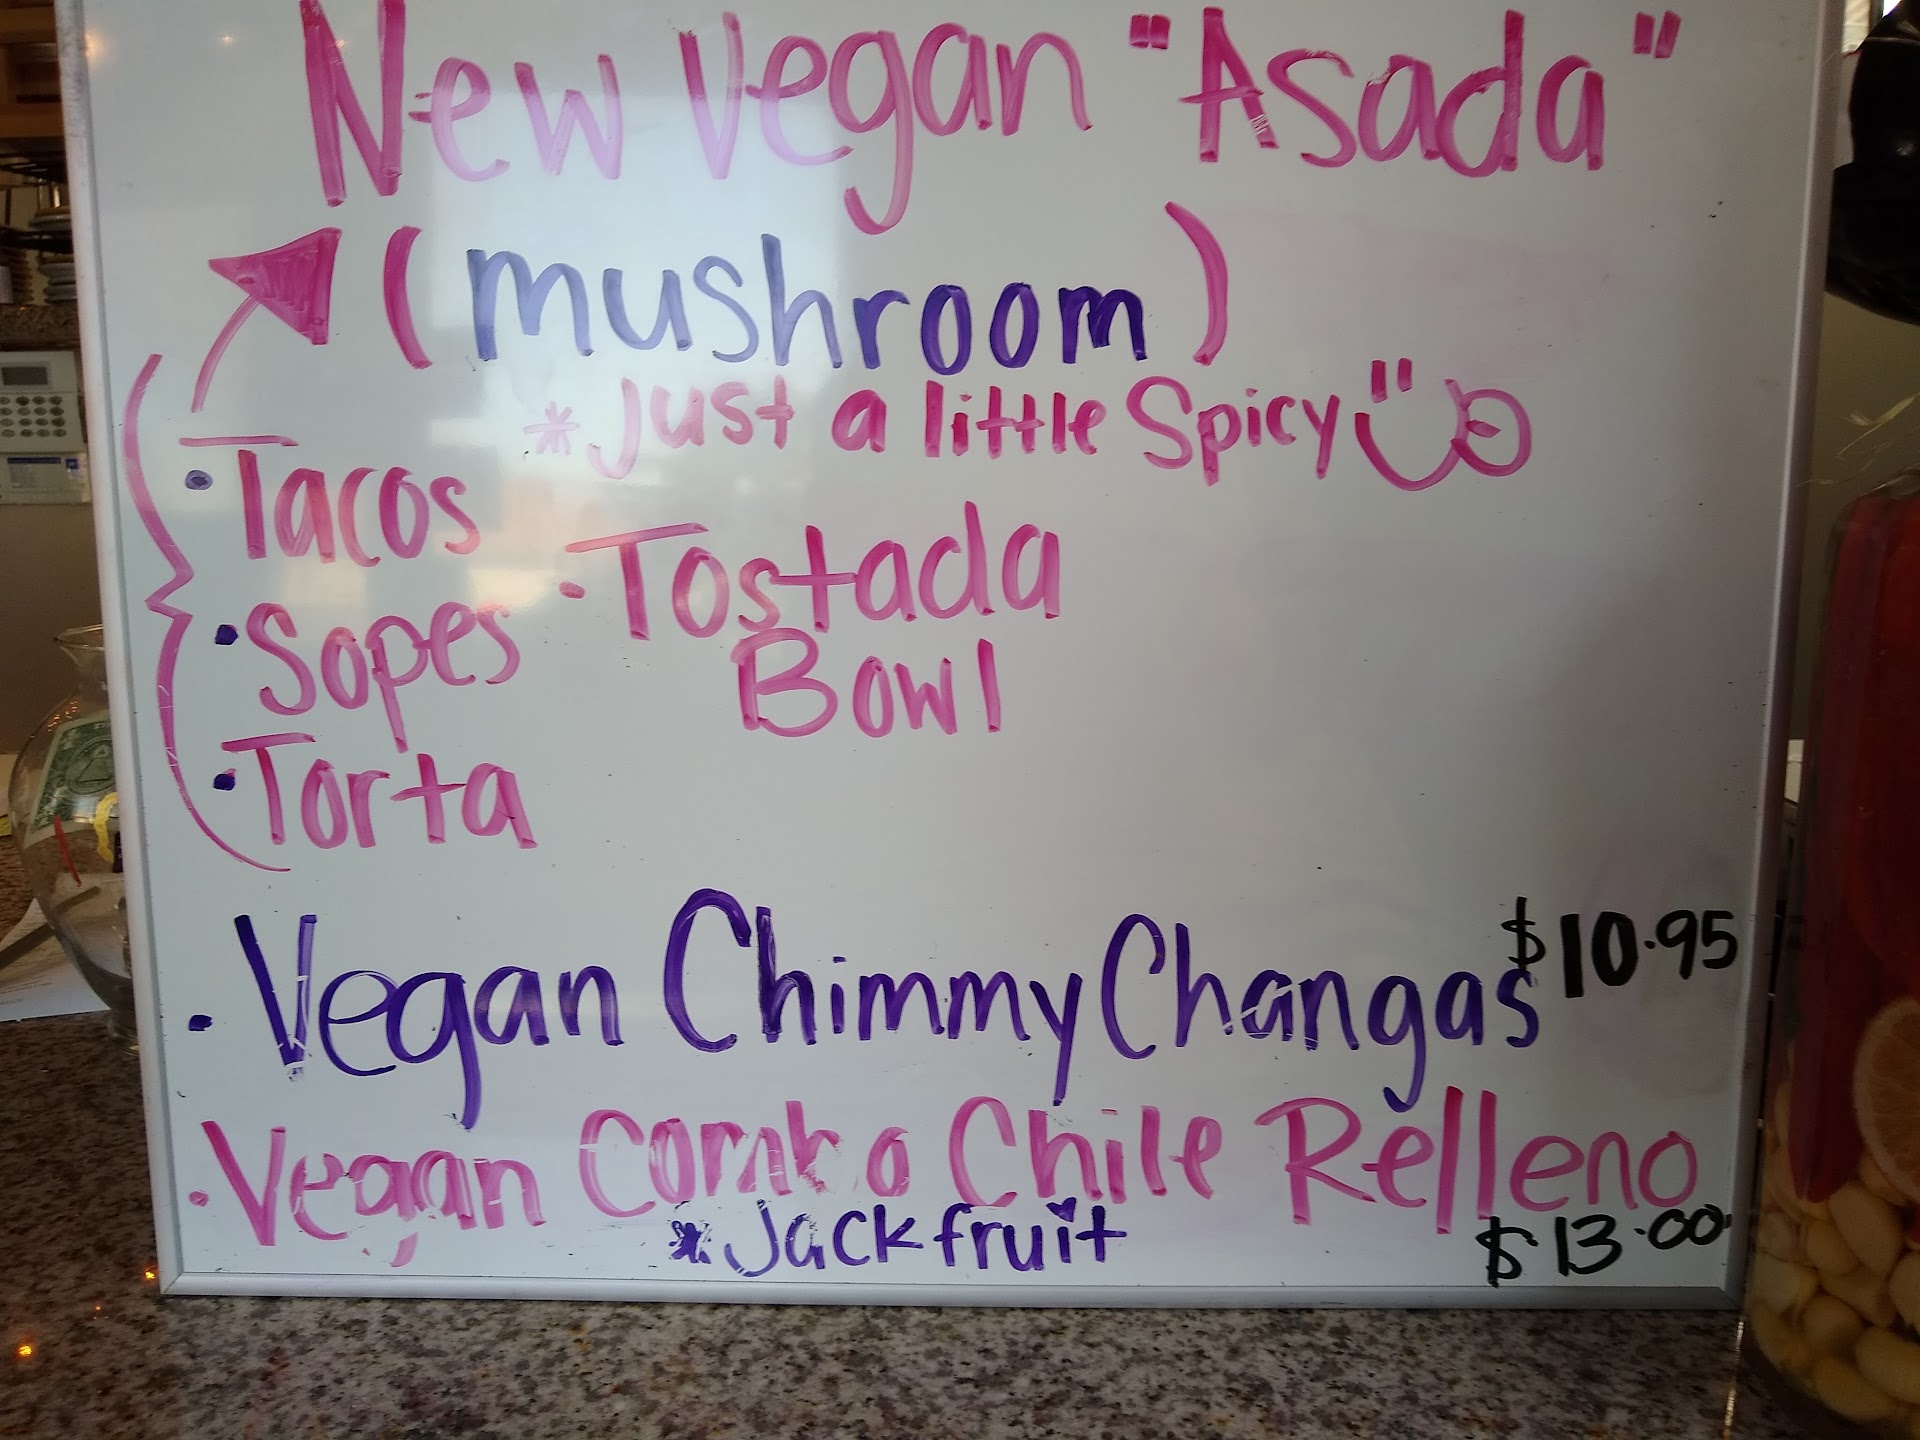 New Vegan "Asada"
(mushroom)
*Just a little Spicy
·Tacos
·Sopes
·Torta
·Tostada
Bowl
·Vegan ChimmyChangas $10.95
·Vegan Combo Chile Relleno
*Jackfruit
$13.00